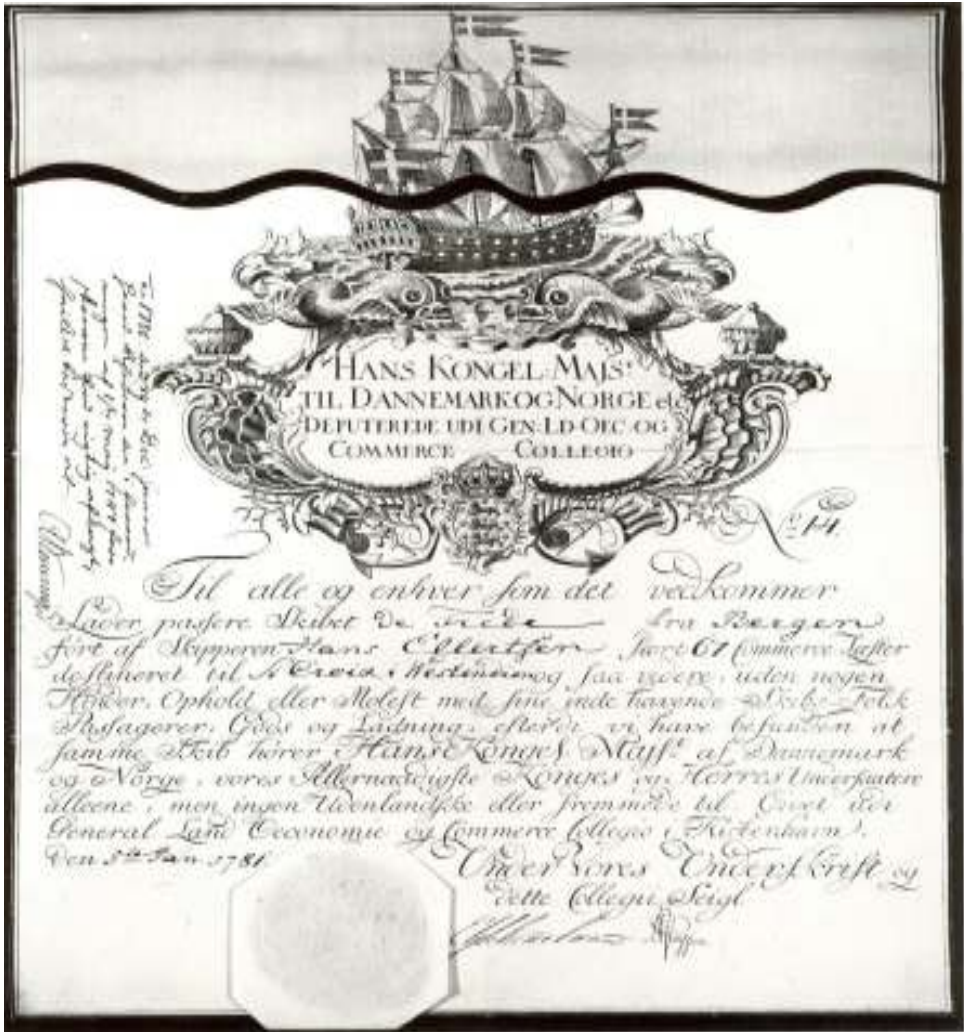 HANS KONGEL: MAJS.ᵗ
TIL DANNEMARK OG NORGE etc
DEPUTEREDE UDI GEN: LD. OEC. OG
COMMERCE COLLEGIO
No. 14.
Til alle og enhver som det vedkommer
Lader passere Skibet De Fiede fra Bergen
fört af Skipperen Hans Ellertsen stort 61 Commerce Læster
destineret til St Croix i Westindien og saa videre, uden nogen
Hinder, Ophold eller Molest med sine inde havende Skibs-Folk
Passagerer, Gods og Ladning, efterdi vi have befunden at
samme Skib hører Hans Konges Majsᵗ. af Dannemark
og Norge, vores Allernaadigste Konges og Herres Undersaatere
alleene, men ingen Udenlandske eller fremmede til. Givet udi
General Land Oeconomie og Commerce Collegio i Kiöbenhavn.
den 5te Jan 1781.
Under Vores Underskrift og
dette Collegii Seigl